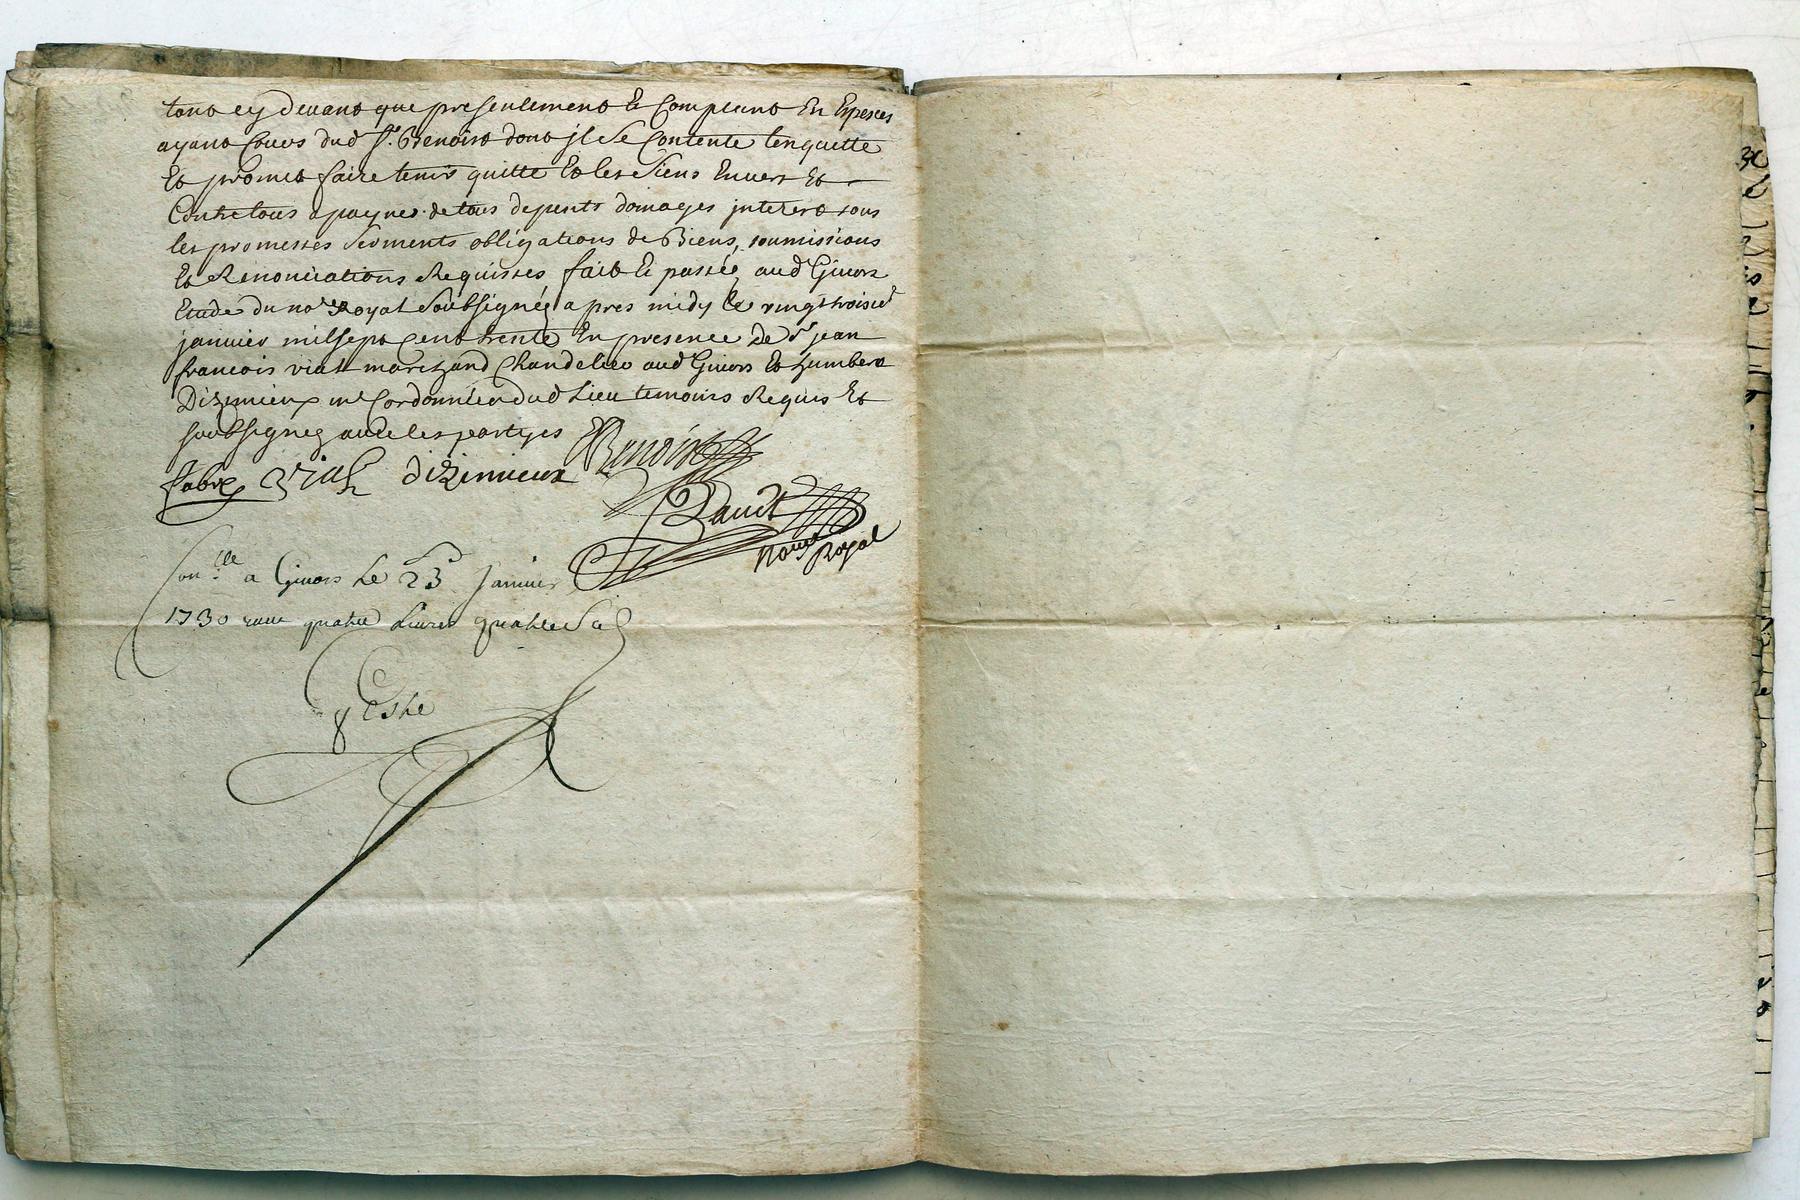 tant cy devant que presentement et comptant En Especes
ayant Cours dud Sr. Benoist dont jl se Contente len quitte
Et promet faire tenir quitte Et les Siens Envers Et
Contre tous a payne de tous depents domages interest sous
les promesses serments obligations de Biens, soumissions
Et Renonciations Requisses fait Et passée aud Givors
Etude du nore Royal Soubsigné apres midy le vingt troisie
janvier mil sept cent trente En presence de Sr jean
francois viall marchand Chandelier aud Givors Et humbert
Dizimieux me Cordonnier dud Lieu temoins Requis Et
soubsignez avec les partyes Benoist
fabre viall dizimieux
Baudt
Notre Royal
Con.lle a Givors Le 23e Janvier
1730 receu quatre Livres quatre Sols